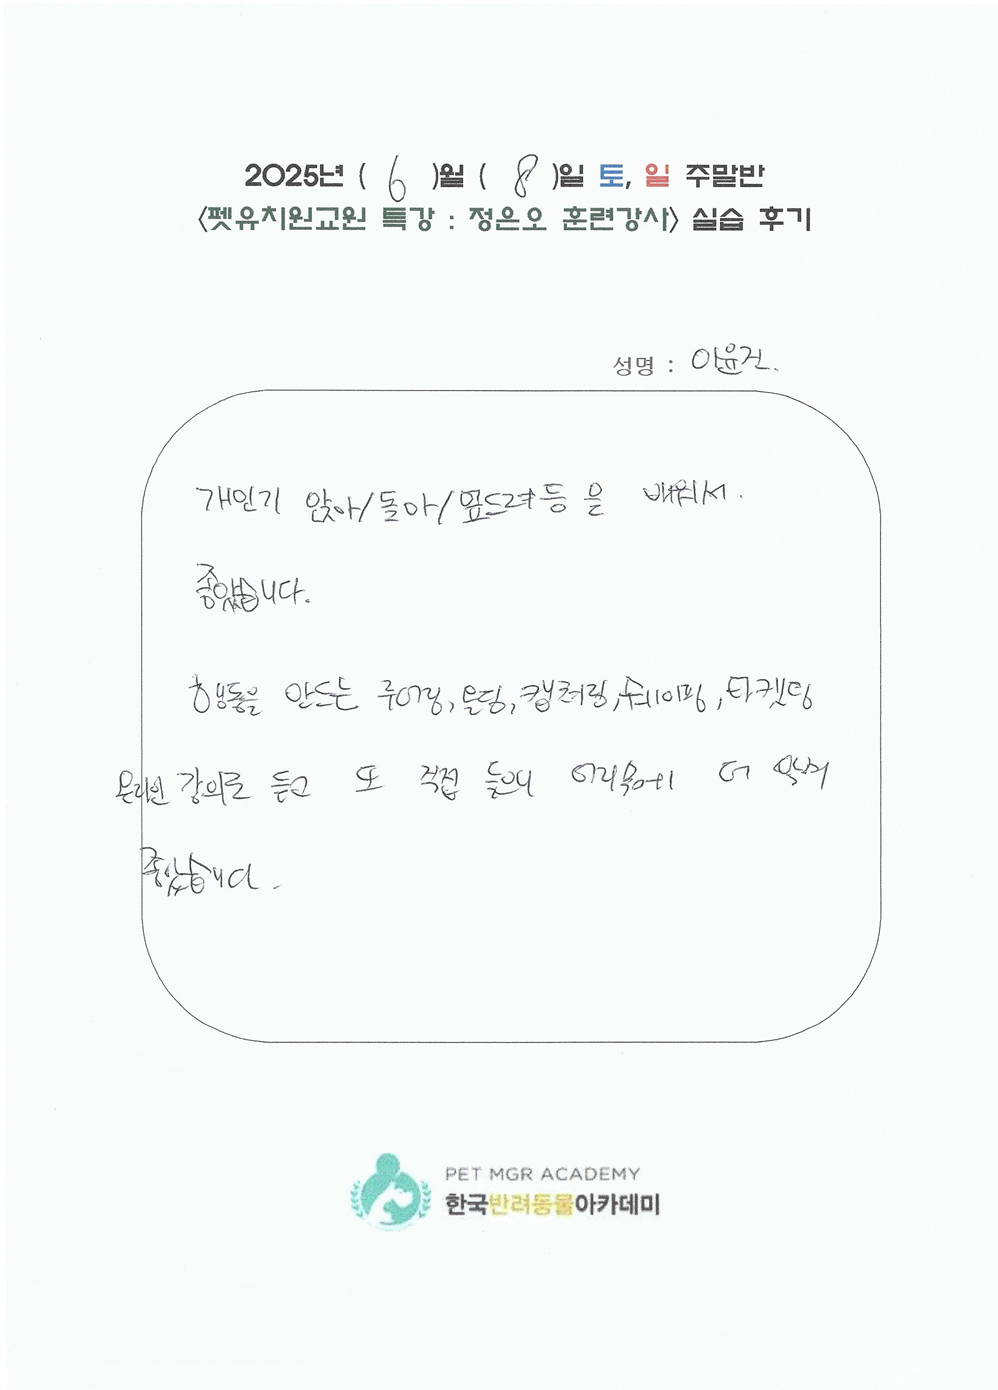 2025년 ( 6 )월 ( 8 )일 토, 일 주말반
<펫유치원교원 특강 : 정은오 훈련강사> 실습 후기
성명 : 이윤건.
개인기 앉아/돌아/엎드려 등 을 배워서.
좋았습니다.
행동을 만드는 루어링, 몰딩, 캡쳐링, 쉐이핑, 타켓팅
온라인 강의로 듣고 또 직접 들으니 더
좋았습니다.
PET MGR ACADEMY
한국반려동물아카데미